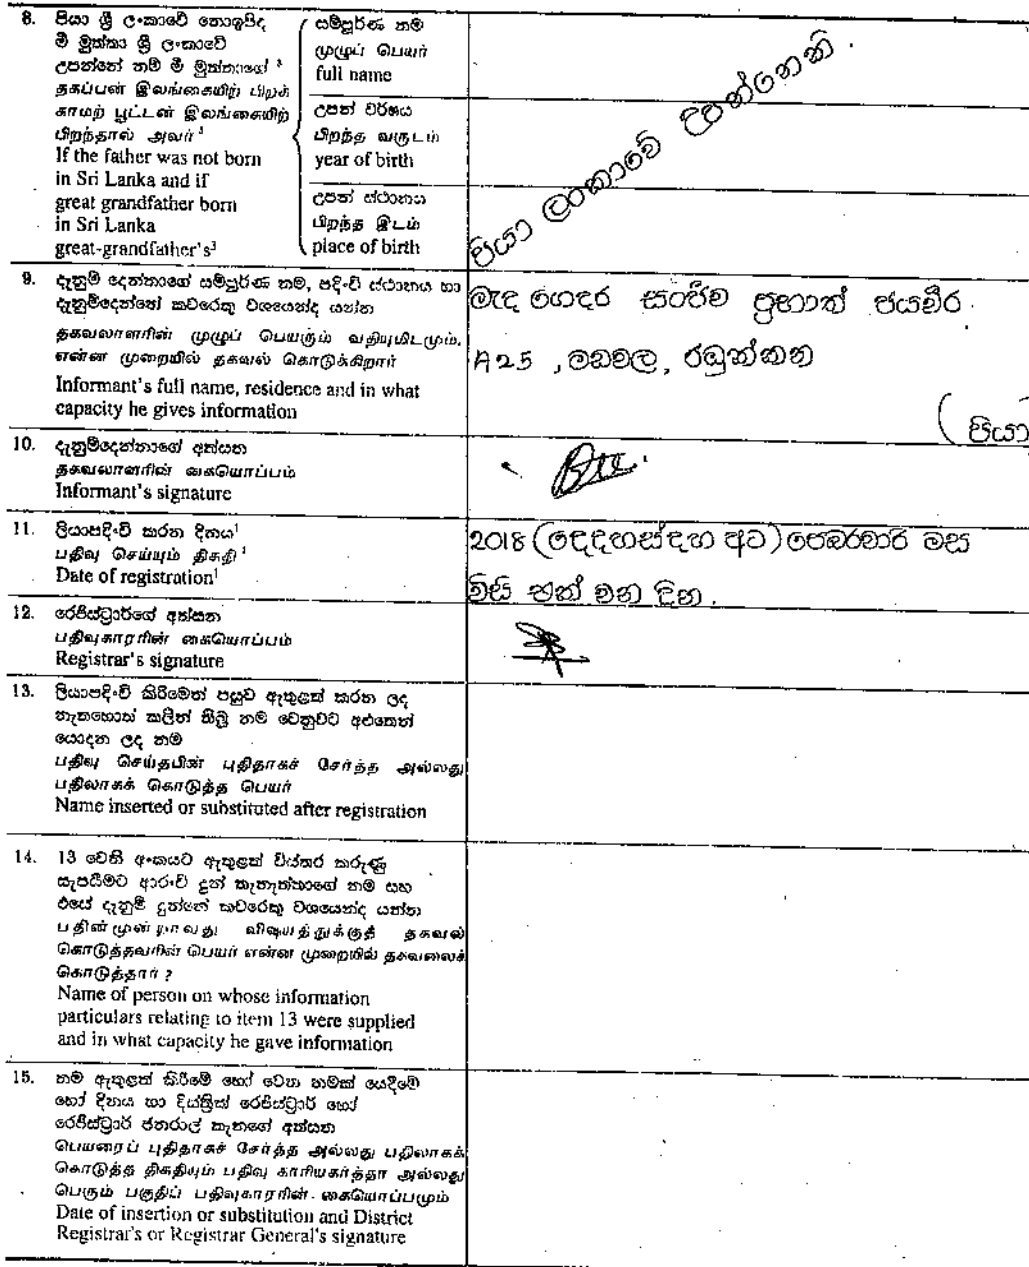 8. පියා ශ්‍රී ලංකාවේ නොඉපිද
මී මුත්තා ශ්‍රී ලංකාවේ
උපන්නේ නම් මී මුත්තාගේ ³
தகப்பன் இலங்கையிற் பிறக்
காமற் பூட்டன் இலங்கையிற்
பிறந்தால் அவர் ³
If the father was not born
in Sri Lanka and if
great grandfather born
in Sri Lanka
great-grandfather's³
සම්පූර්ණ නම
முழுப் பெயர்
full name
උපන් වර්ෂය
பிறந்த வருடம்
year of birth
උපන් ස්ථානය
பிறந்த இடம்
place of birth
පියා ලංකාවේ උපන්නෙනි.
9. දැනුම් දෙන්නාගේ සම්පූර්ණ නම, පදිංචි ස්ථානය හා
දැනුම්දෙන්නේ කවරෙකු වශයෙන්ද යන්න
தகவலாளரின் முழுப் பெயரும் வதியுமிடமும்,
என்ன முறையில் தகவல் கொடுக்கிறார்
Informant's full name, residence and in what
capacity he gives information
මැද ගෙදර සංජීව ප්‍රභාත් ජයවීර.
A25, මඩවල, රඹුක්කන
(පියා
10. දැනුම්දෙන්නාගේ අත්සන
தகவலாளரின் கையொப்பம்
Informant's signature
11. ලියාපදිංචි කරන දිනය¹
பதிவு செய்யும் திகதி ¹
Date of registration¹
2018 (දෙදහස්දහ අට) පෙබරවාරි මස
විසි එක් වන දින.
12. රෙජිස්ට්‍රාර්ගේ අත්සන
பதிவுகாரரின் கையொப்பம்
Registrar's signature
13. ලියාපදිංචි කිරීමෙන් පසුව ඇතුළත් කරන ලද
නැතහොත් කලින් තිබූ නම වෙනුවට අළුතෙන්
යොදන ලද නම
பதிவு செய்தபின் புதிதாகச் சேர்த்த அல்லது
பதிலாகக் கொடுத்த பெயர்
Name inserted or substituted after registration
14. 13 වෙනි අංකයට ඇතුළත් විස්තර කරුණු
සැපයීමට ආරංචි දුන් තැනැත්තාගේ නම සහ
එසේ දැනුම් දුන්නේ කවරෙකු වශයෙන්ද යන්න
பதின்மூன்றாவது விஷயத்துக்குத் தகவல்
கொடுத்தவரின் பெயர் என்ன முறையில் தகவலைக்
கொடுத்தார் ?
Name of person on whose information
particulars relating to item 13 were supplied
and in what capacity he gave information
15. නම ඇතුළත් කිරීමේ හෝ වෙන නමක් යෙදීමේ
හෝ දිනය හා දිස්ත්‍රික් රෙජිස්ට්‍රාර් හෝ
රෙජිස්ට්‍රාර් ජනරාල් තැනගේ අත්සන
பெயரைப் புதிதாகச் சேர்த்த அல்லது பதிலாகக்
கொடுத்த திகதியும் பதிவு காரியகர்த்தா அல்லது
பெரும் பகுதிப் பதிவுகாரரின் கையொப்பமும்
Date of insertion or substitution and District
Registrar's or Registrar General's signature